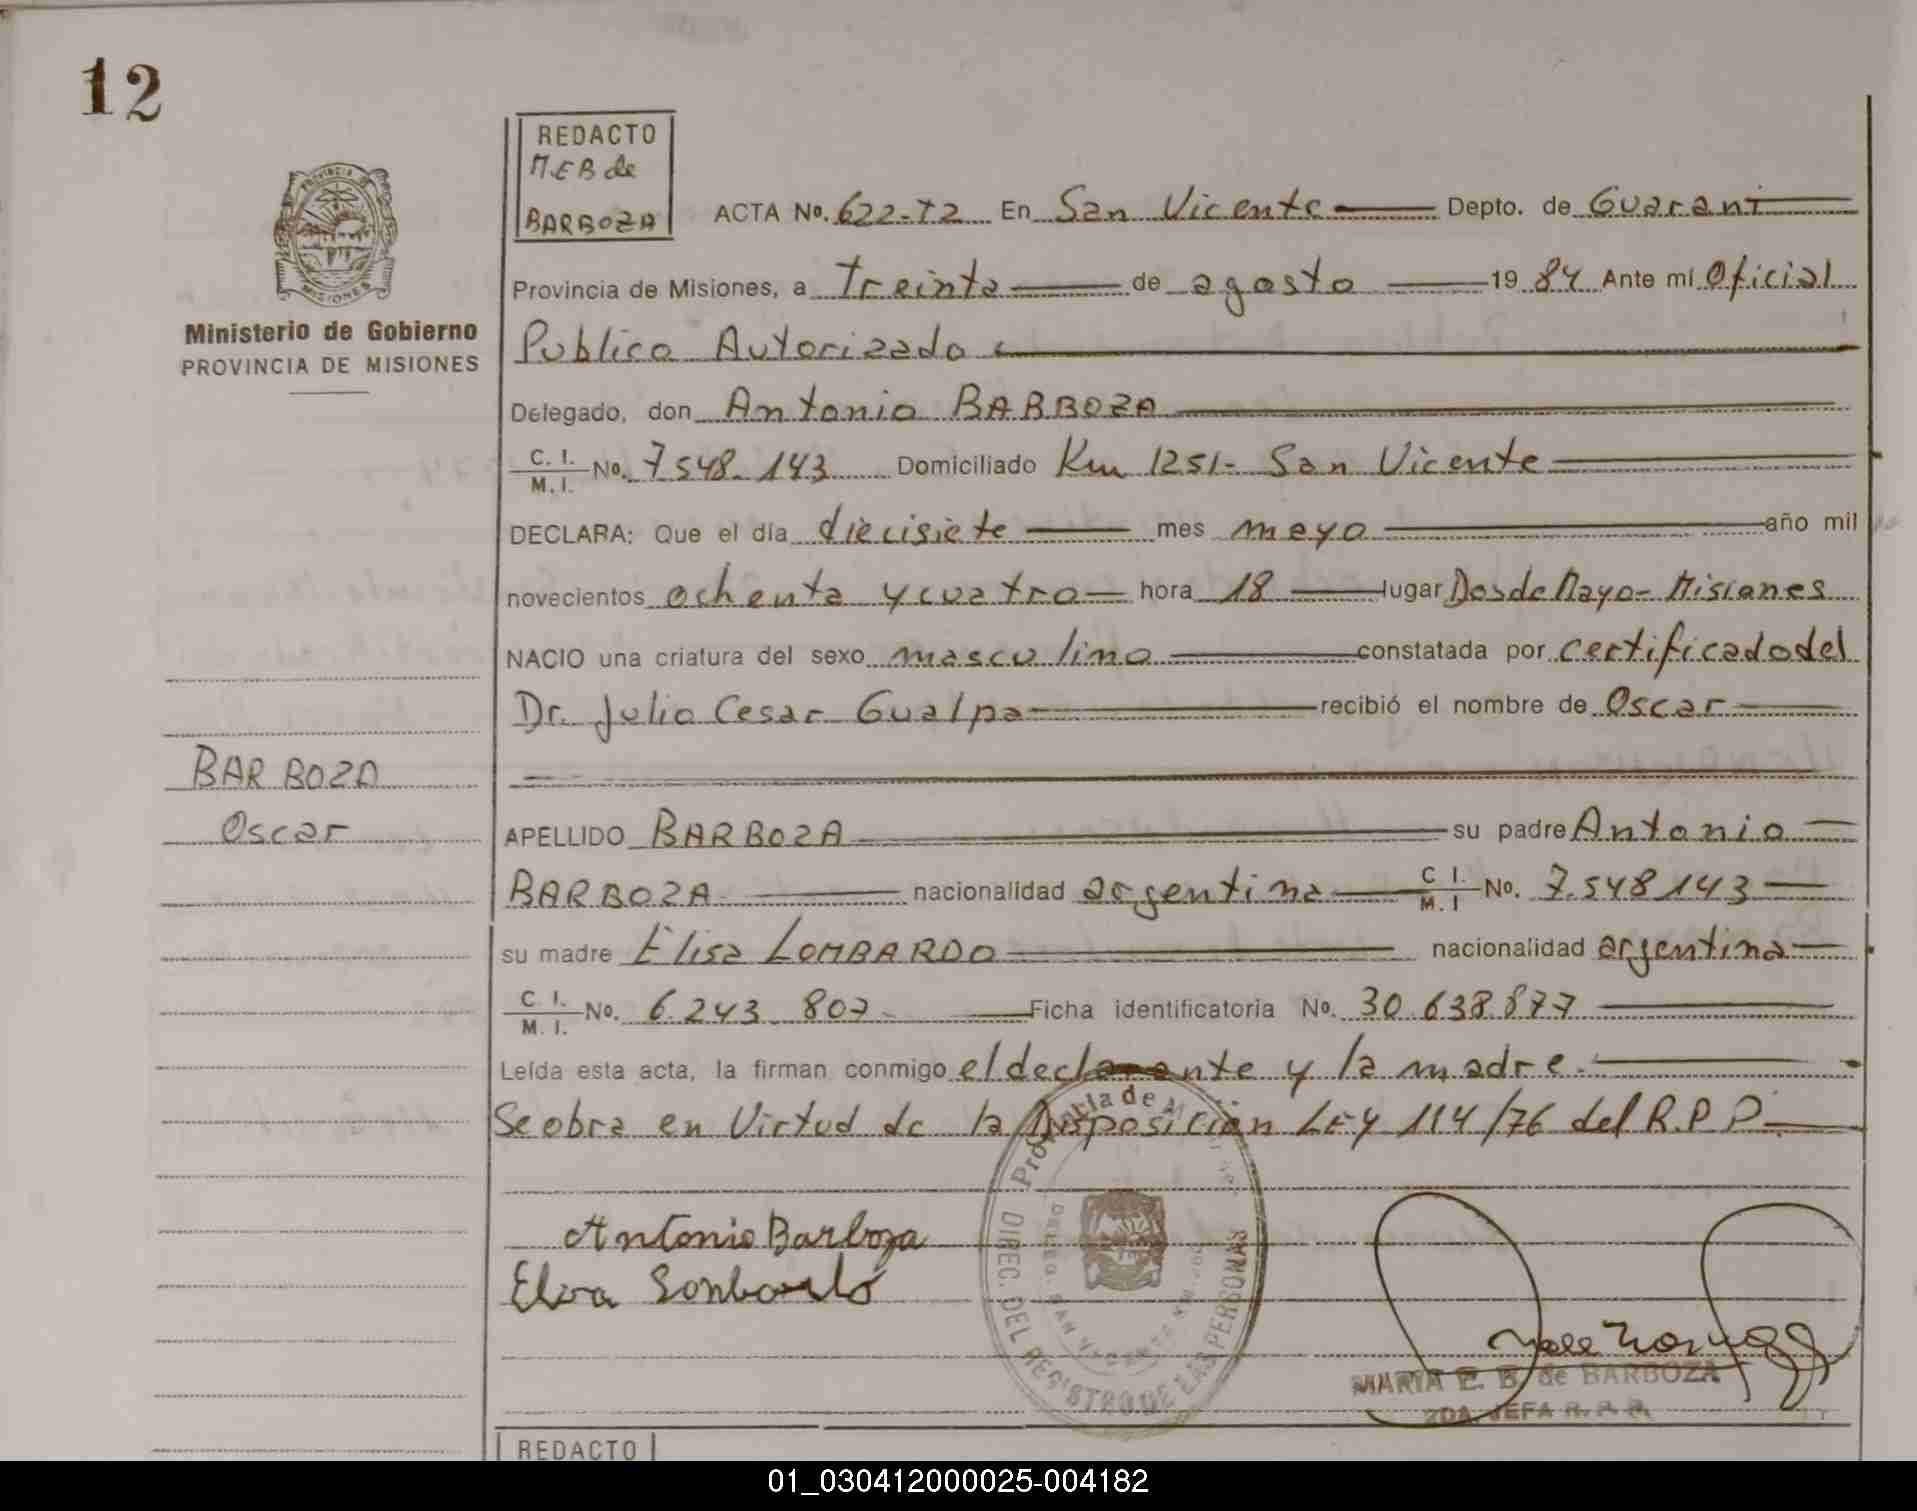 12
REDACTO
M.E B de
BARBOZA
ACTA No. 622-T2 En San Vicente Depto. de Guarani
PROVINCIA DE
MISIONES
Ministerio de Gobierno
PROVINCIA DE MISIONES
Provincia de Misiones, a treinta de agosto 19 84 Ante mí Oficial
Publico Autorizado
Delegado, don Antonio BARBOZA
C. I. M. I. No. 7548-143 Domiciliado Km 1251- San Vicente
DECLARA: Que el día diecisiete mes mayo año mil
novecientos ochenta y cuatro hora 18 lugar Dos de Mayo- Misiones
NACIO una criatura del sexo masculino constatada por certificado del
Dr. Julio Cesar Gualpa recibió el nombre de Oscar
BARBOZA
Oscar
APELLIDO BARBOZA su padre Antonio
BARBOZA nacionalidad argentina C I. M. I No. 7.548143
su madre Elisa LOMBARDO nacionalidad argentina
C. I. M. I. No. 6.243.807 Ficha identificatoria No. 30.638.877
Leída esta acta, la firman conmigo el declarante y la madre.
Se obra en Virtud de la Disposición LEY 114/76 del R.P.P.
Antonio Barboza
Elsa Lonbardo
Provincia de Misiones
DIREC. DEL REGISTRO DE LAS PERSONAS
SAN VICENTE
MARIA E. B. de BARBOZA
2DA. JEFA R. P. P.
REDACTO
01_030412000025-004182